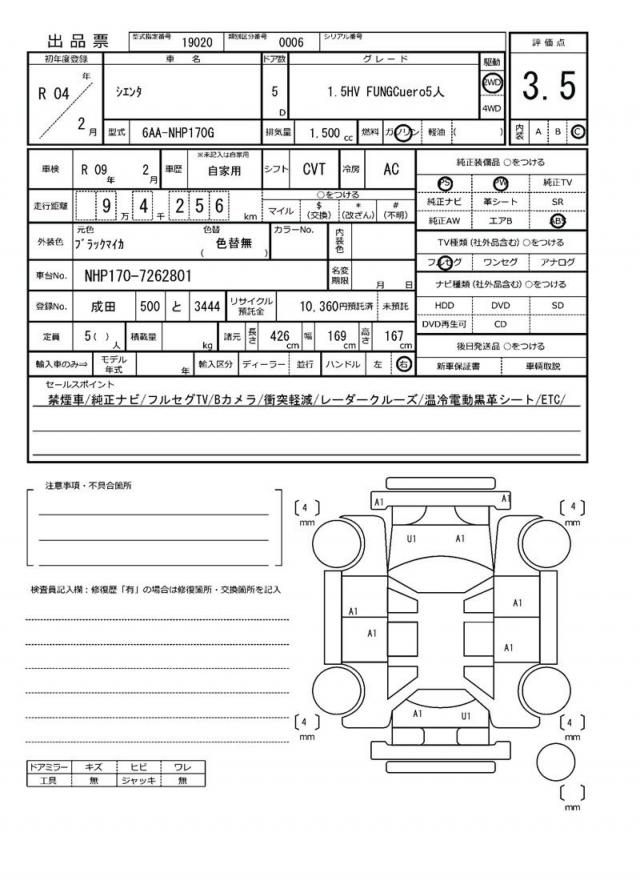 出品票 型式指定番号 19020 類別区分番号 0006 シリアル番号
初年度登録 車名 ドア数 グレード 駆動 評価点
R 04 年 2 月 シエンタ 5 D 1.5HV FUNGCuero5人 2WD 4WD 3.5
型式 6AA-NHP170G 排気量 1.500 cc 燃料 ガソリン 軽油 ( ) 内装 A B C
車検 R 09 年 2 月 車歴 ※未記入は自家用 自家用 シフト CVT 冷房 AC
走行距離 9 万 4 千 2 5 6 km ○をつける マイル $ (交換) * (改ざん) # (不明)
外装色 元色 ブラックマイカ 色替 ( 色替無 ) カラーNo. 内装色
車台No. NHP170-7262801 名変期限 月 日
登録No. 成田 500 と 3444 リサイクル預託金 10,360円預託済 未預託
定員 5( ) 人 積載量 kg 諸元 長さ 426 cm 幅 169 cm 高さ 167 cm
輸入車のみ⇒ モデル年式 年 輸入区分 ディーラー 並行 ハンドル 左 右
純正装備品 ○をつける
PS PW 純正TV
純正ナビ 革シート SR
純正AW エアB ABS
TV種類(社外品含む)○をつける
フルセグ ワンセグ アナログ
ナビ種類(社外品含む)○をつける
HDD DVD SD
DVD再生可 CD
後日発送品 ○をつける
新車保証書 車輌取説
セールスポイント
禁煙車/純正ナビ/フルセグTV/Bカメラ/衝突軽減/レーダークルーズ/温冷電動黒革シート/ETC/
注意事項・不具合箇所
検査員記入欄：修復歴「有」の場合は修復箇所・交換箇所を記入
ドアミラー キズ ヒビ ワレ
工具 無 ジャッキ 無
A1 A1
[ 4 ] mm [ 4 ] mm
U1 A1
A1 A1
A1 A1
A1 U1
[ 4 ] mm [ 4 ] mm
[ ] mm